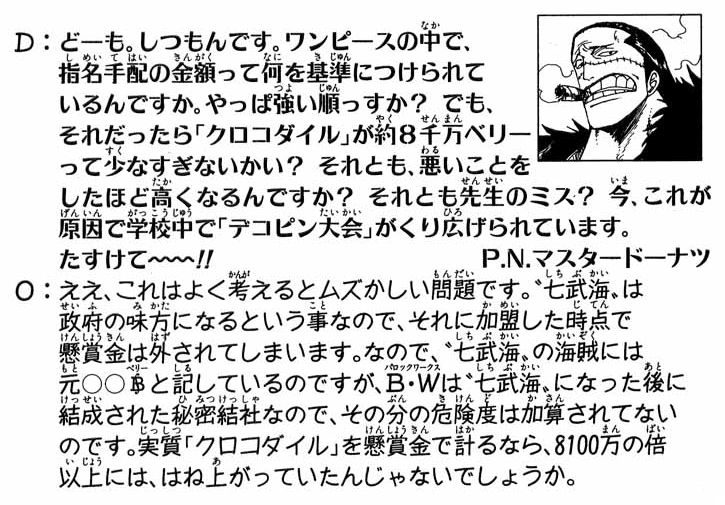 D：どーも。しつもんです。ワンピースの中で、
指名手配の金額って何を基準につけられて
いるんですか。やっぱ強い順っすか？ でも、
それだったら「クロコダイル」が約8千万ベリー
って少なすぎないかい？ それとも、悪いことを
したほど高くなるんですか？ それとも先生のミス？ 今、これが
原因で学校中で「デコピン大会」がくり広げられています。
たすけて〜〜〜!! P.N.マスタードーナツ
O：ええ、これはよく考えるとムズかしい問題です。〝七武海〟は
政府の味方になるという事なので、それに加盟した時点で
懸賞金は外されてしまいます。なので、〝七武海〟の海賊には
元○○฿と記しているのですが、B・Wは〝七武海〟になった後に
結成された秘密結社なので、その分の危険度は加算されてない
のです。実質「クロコダイル」を懸賞金で計るなら、8100万の倍
以上には、はね上がっていたんじゃないでしょうか。